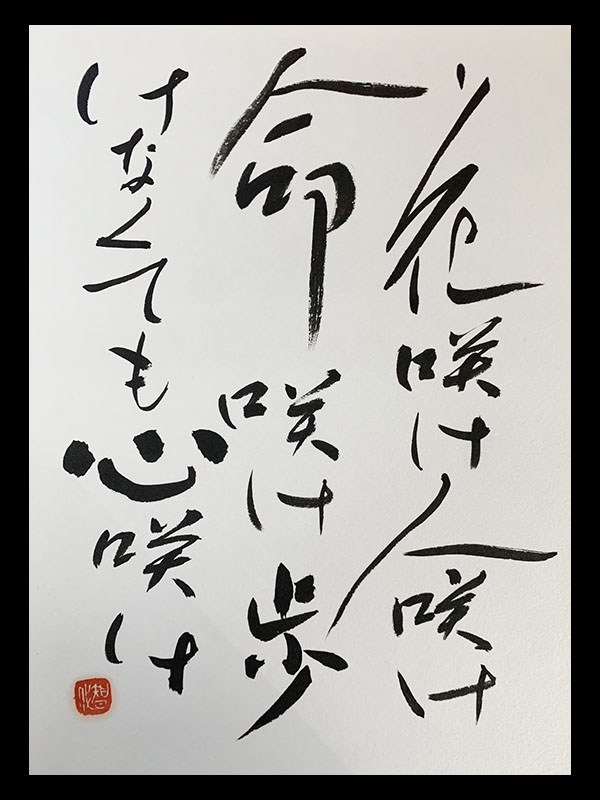 花咲け人咲け
命咲け歩
けなくても心咲け